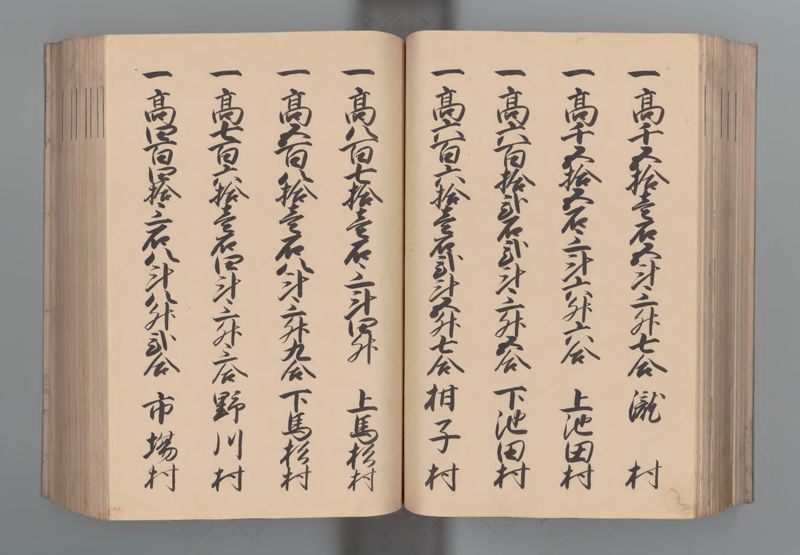 一高千五拾壱石五斗三升七合 瀧村
一高千五拾五石三斗六升六合 上池田村
一高六百拾弐石弐斗三升五合 下池田村
一高六百六拾壱石弐斗五升七合 柑子村
一高八百七拾壱石三斗四升 上馬杉村
一高五百八拾壱石八斗三升九合 下馬杉村
一高七百六拾壱石四斗三升三合 野川村
一高四百四拾三石八斗八升弐合 市場村